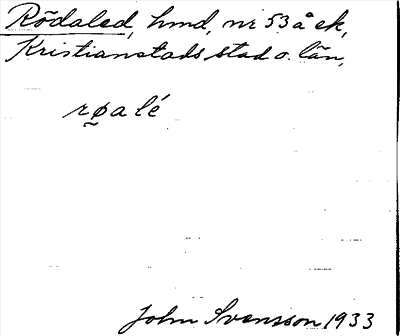 Rödaled, hmd, nr 53 å ek,
Kristianstads stad o. län,
rø̰alé
John Svensson 1933